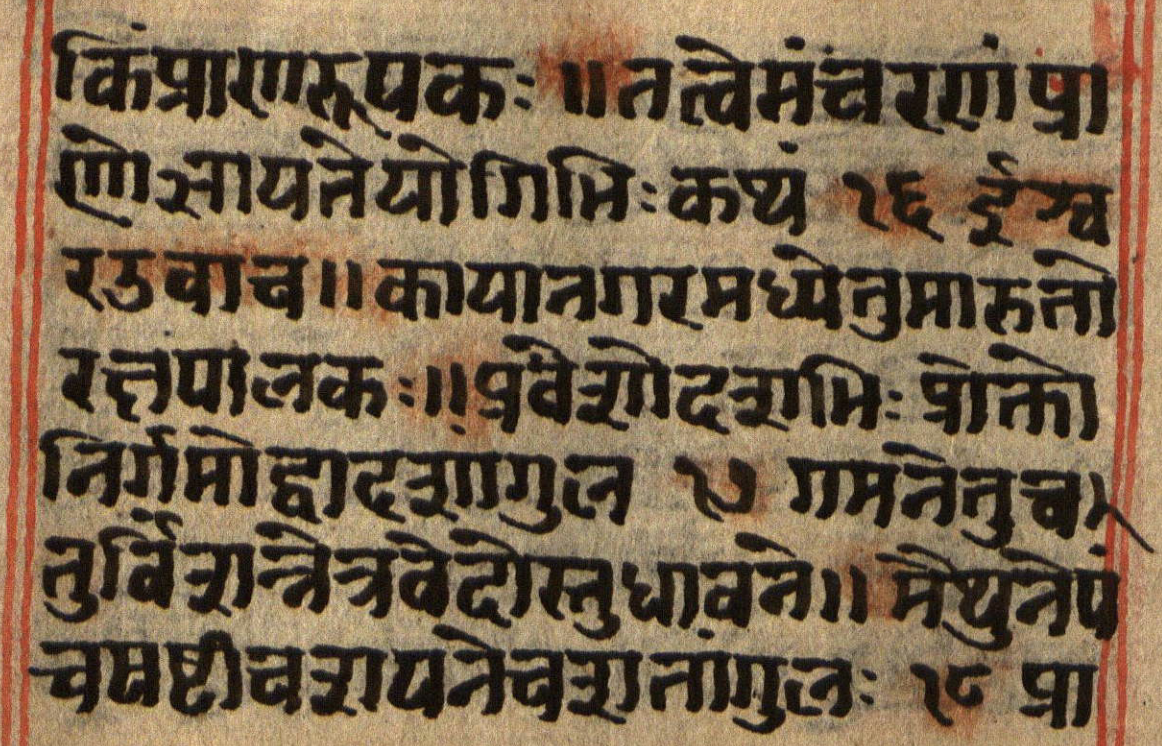 किंप्राणरूपकः ॥ तत्वेमंचरणं प्रा
णो सायतेयोगिभिः कथं १६ ईश्व
रउवाच ॥ कायानगरमध्येतुमारुतो
रक्तपालकः ॥ प्रवेशोदशभिः प्रोक्तो
निर्गमोद्वादशागुल १७ गमनेतुच
तुर्विशन्नेत्रवेदोस्तुधावने ॥ मैथुनेपं
चषष्टीचशयनेचशतांगुलः १८ प्रा